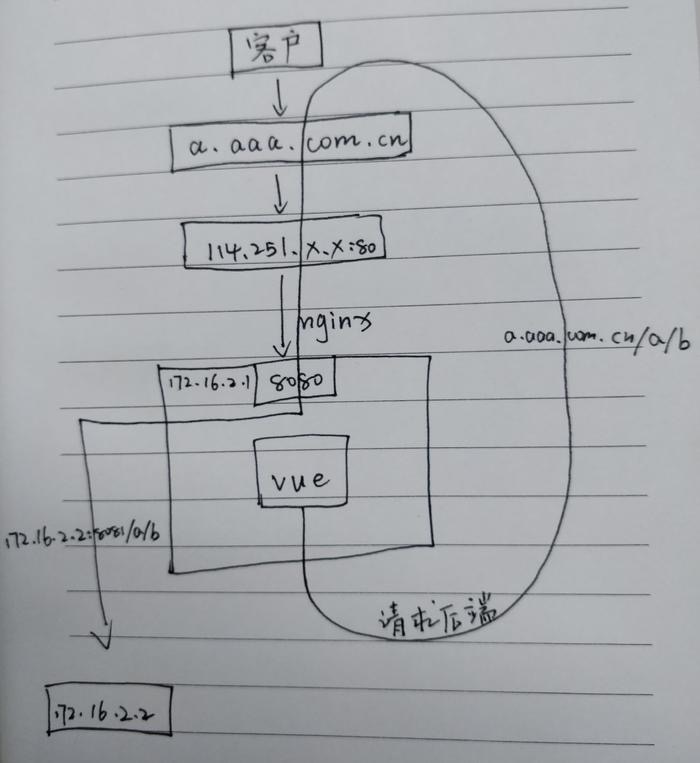 客户
a.aaa.com.cn
114.251.x.x:80
nginx
a.aaa.com.cn/a/b
172.16.2.1 8080
vue
172.16.2.2:8081/a/b
请求后端
172.16.2.2